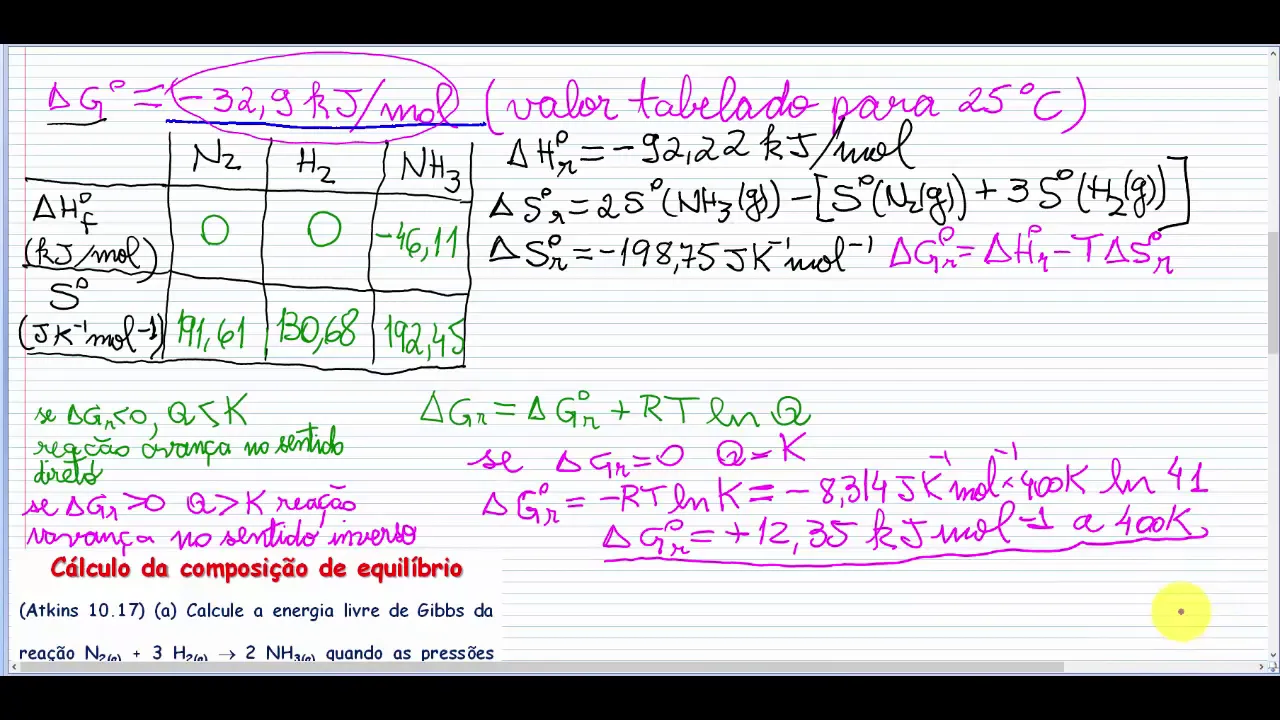 ΔG° = -32,9 kJ/mol (valor tabelado para 25°C)
N2 H2 NH3
ΔHf° (kJ/mol) 0 0 -46,11
S° (JK⁻¹mol⁻¹) 191,61 130,68 192,45
ΔHr° = -92,22 kJ/mol
ΔSr° = 2S°(NH3(g)) - [S°(N2(g)) + 3S°(H2(g))]
ΔSr° = -198,75 JK⁻¹mol⁻¹ ΔGr° = ΔHr° - TΔSr°
se ΔGr<0, Q<K
reação avança no sentido
direto
se ΔGr>0 Q>K reação
avança no sentido inverso
ΔGr = ΔGr° + RT ln Q
se ΔGr=0 Q=K
ΔGr° = -RT ln K = -8,314 JK⁻¹mol⁻¹×400K ln 41
ΔGr° = +12,35 kJ mol⁻¹ a 400K
Cálculo da composição de equilíbrio
(Atkins 10.17) (a) Calcule a energia livre de Gibbs da
reação N2(g) + 3 H2(g) → 2 NH3(g) quando as pressões